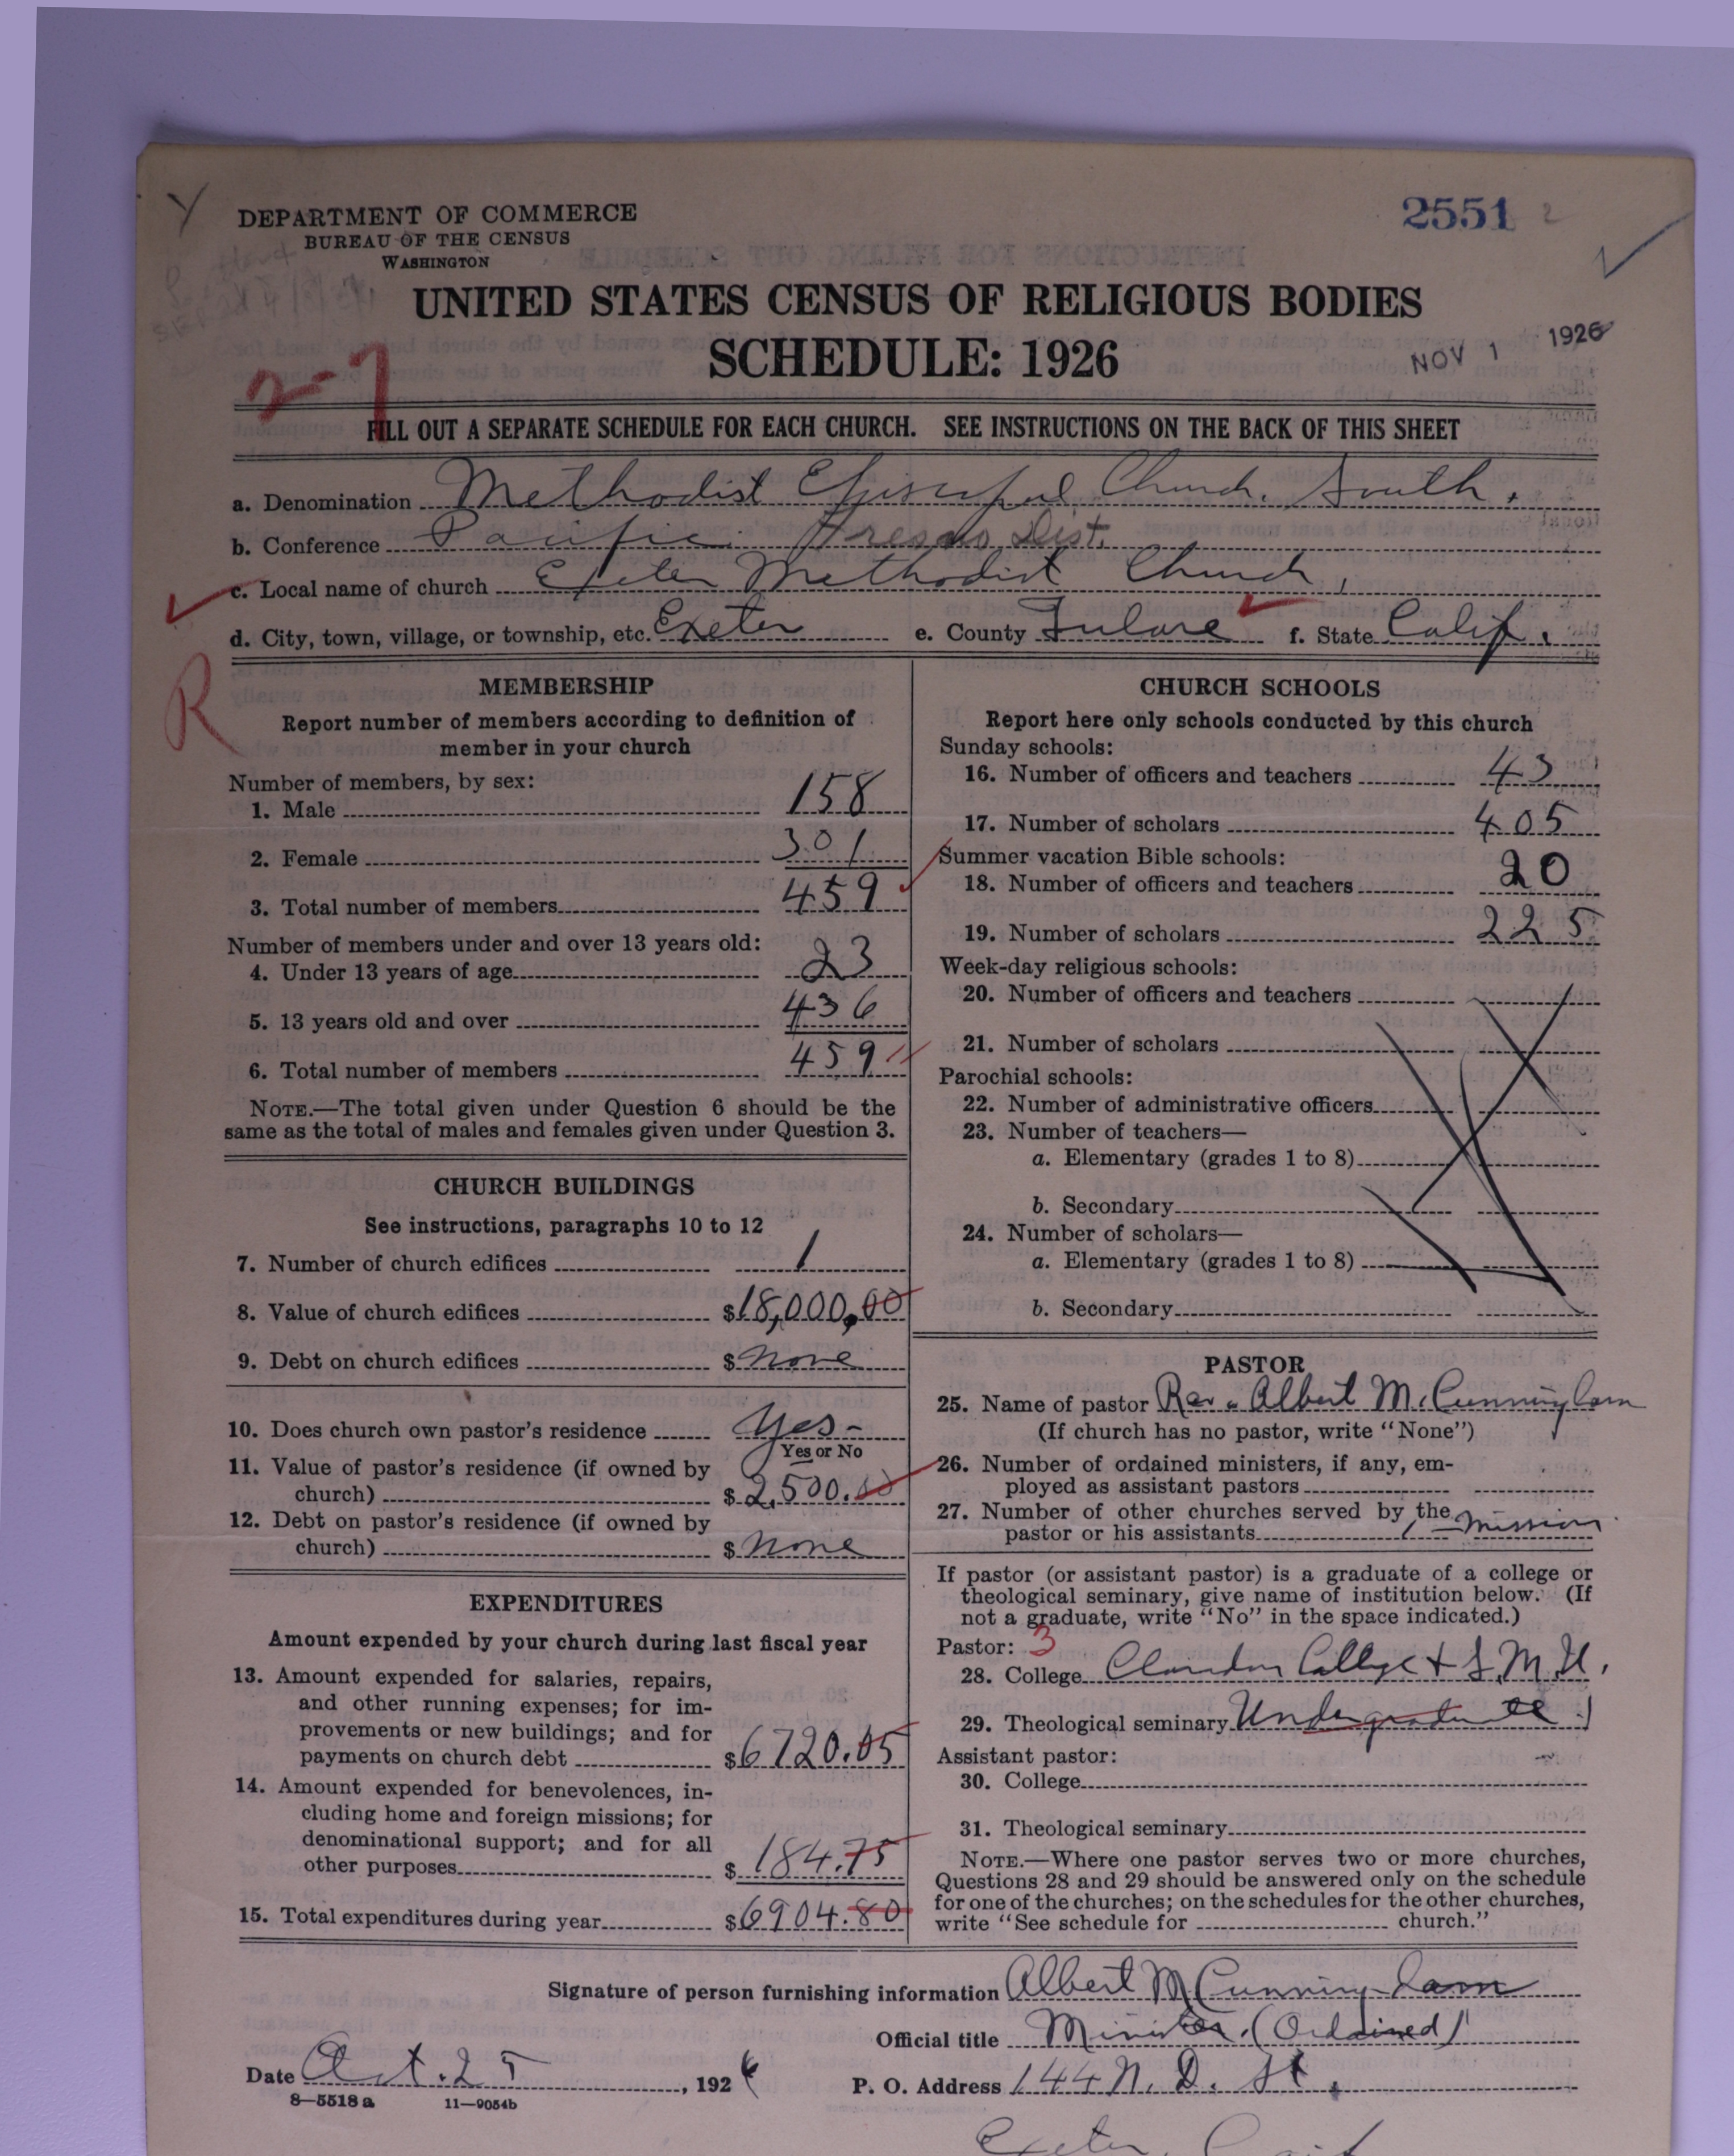 DEPARTMENT OF COMMERCE
BUREAU OF THE CENSUS
WASHINGTON
2551 2
UNITED STATES CENSUS OF RELIGIOUS BODIES
SCHEDULE: 1926
NOV 1 1926
2-7
FILL OUT A SEPARATE SCHEDULE FOR EACH CHURCH. SEE INSTRUCTIONS ON THE BACK OF THIS SHEET
a. Denomination Methodist Episcopal Church, South.
b. Conference Pacific Fresno Dist.
c. Local name of church Exeter Methodist Church,
d. City, town, village, or township, etc. Exeter e. County Tulare f. State Calif.
R
MEMBERSHIP
Report number of members according to definition of
member in your church
Number of members, by sex:
1. Male 158
2. Female 301
3. Total number of members 459
Number of members under and over 13 years old:
4. Under 13 years of age 23
5. 13 years old and over 436
6. Total number of members 459
NOTE.—The total given under Question 6 should be the
same as the total of males and females given under Question 3.
CHURCH BUILDINGS
See instructions, paragraphs 10 to 12
7. Number of church edifices 1
8. Value of church edifices $18,000.00
9. Debt on church edifices $ None
10. Does church own pastor's residence Yes-
Yes or No
11. Value of pastor's residence (if owned by
church) $2,500.00
12. Debt on pastor's residence (if owned by
church) $ None
EXPENDITURES
Amount expended by your church during last fiscal year
13. Amount expended for salaries, repairs,
and other running expenses; for im-
provements or new buildings; and for
payments on church debt $6720.05
14. Amount expended for benevolences, in-
cluding home and foreign missions; for
denominational support; and for all
other purposes $184.75
15. Total expenditures during year $6904.80
CHURCH SCHOOLS
Report here only schools conducted by this church
Sunday schools:
16. Number of officers and teachers 43
17. Number of scholars 405
Summer vacation Bible schools:
18. Number of officers and teachers 20
19. Number of scholars 225
Week-day religious schools:
20. Number of officers and teachers
21. Number of scholars
Parochial schools:
22. Number of administrative officers
23. Number of teachers—
a. Elementary (grades 1 to 8)
b. Secondary
24. Number of scholars—
a. Elementary (grades 1 to 8)
b. Secondary
PASTOR
25. Name of pastor Rev. Albert M. Cunningham
(If church has no pastor, write "None")
26. Number of ordained ministers, if any, em-
ployed as assistant pastors
27. Number of other churches served by the
pastor or his assistants 1 - mission
If pastor (or assistant pastor) is a graduate of a college or
theological seminary, give name of institution below. (If
not a graduate, write "No" in the space indicated.)
Pastor: 3
28. College Clarendon College & S.M.U.
29. Theological seminary Undergraduate
Assistant pastor:
30. College
31. Theological seminary
NOTE.—Where one pastor serves two or more churches,
Questions 28 and 29 should be answered only on the schedule
for one of the churches; on the schedules for the other churches,
write "See schedule for church."
Signature of person furnishing information Albert M Cunningham
Official title Minister. (Ordained)
Date Oct. 25, 1926 P. O. Address 144 N. D. St.
8—5518 a 11—9054b
Exeter, Calif